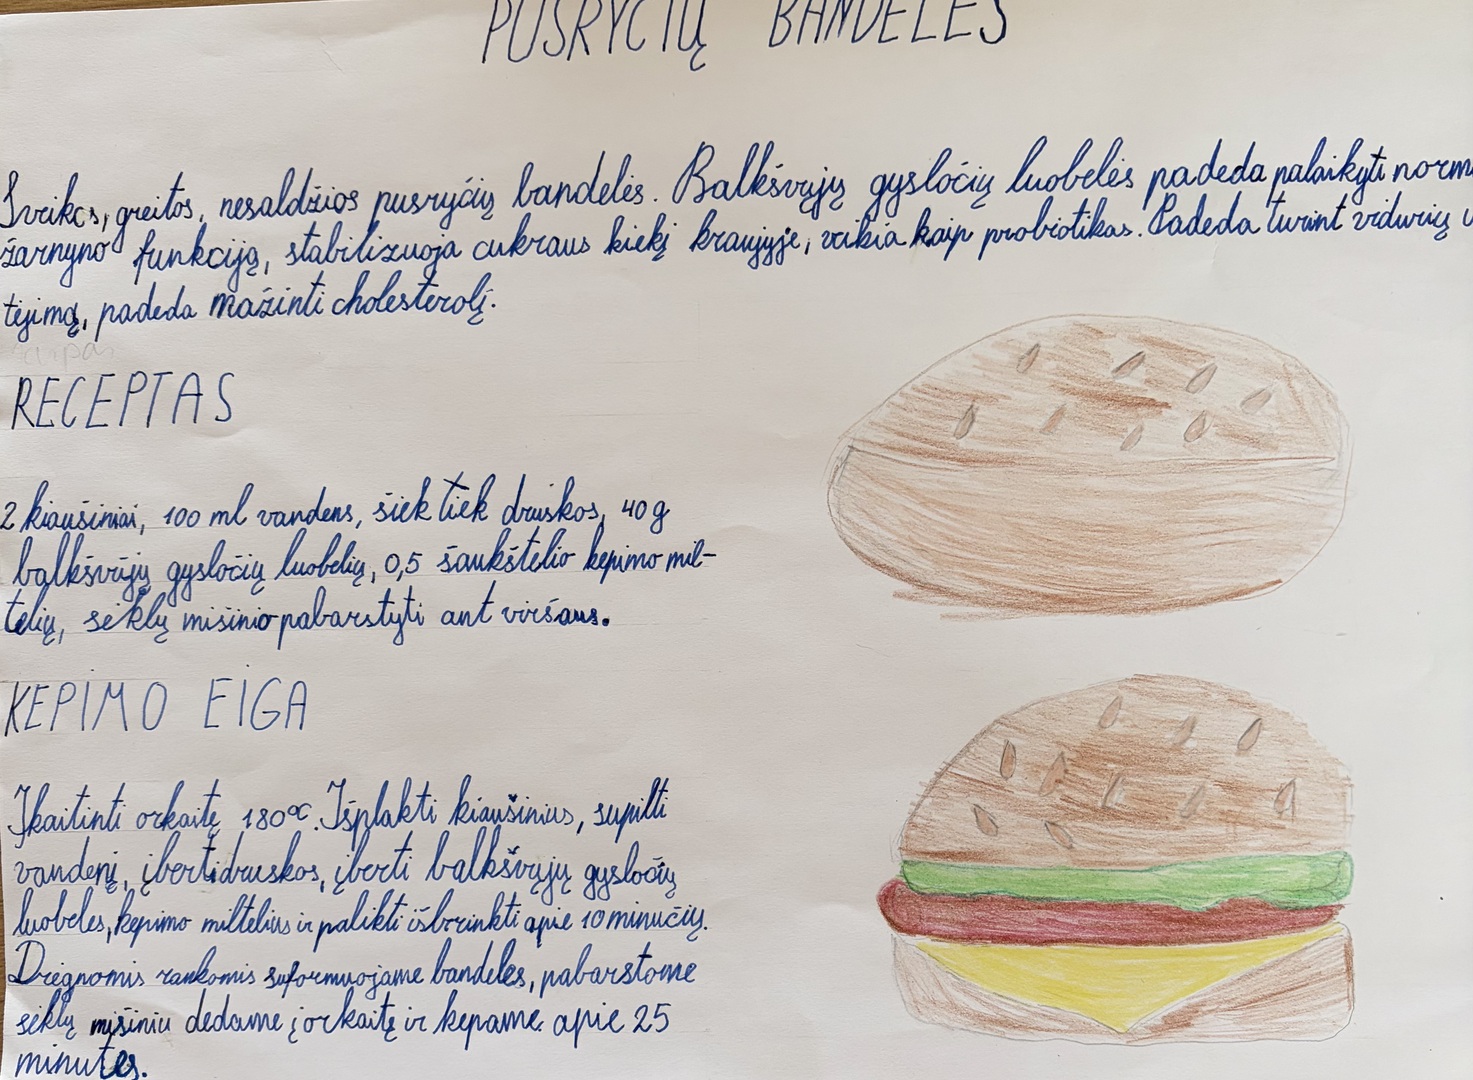 PUSRYČIŲ BANDELĖS
Sveikos, greitos, nesaldžios pusryčių bandelės. Balkšvųjų gysločių luobelės padeda palaikyti norm
žarnyno funkciją, stabilizuoja cukraus kiekį kraujyje, veikia kaip probiotikas. Padeda turint vidurių u
tėjimą, padeda mažinti cholesterolį.
RECEPTAS
2 kiaušiniai, 100 ml vandens, šiek tiek druskos, 40 g
balkšvųjų gysločių luobelių, 0,5 šaukštelio kepimo mil-
telių, sėklų mišinio pabarstyti ant viršaus.
KEPIMO EIGA
Įkaitinti orkaitę 180°C. Išplakti kiaušinius, supilti
vandenį, įberti druskos, įberti balkšvųjų gysločių
luobeles, kepimo miltelius ir palikti išbrinkti apie 10 minučių.
Drėgnomis rankomis suformuojame bandeles, pabarstome
sėklų mišiniu dedame į orkaitę ir kepame apie 25
minutes.